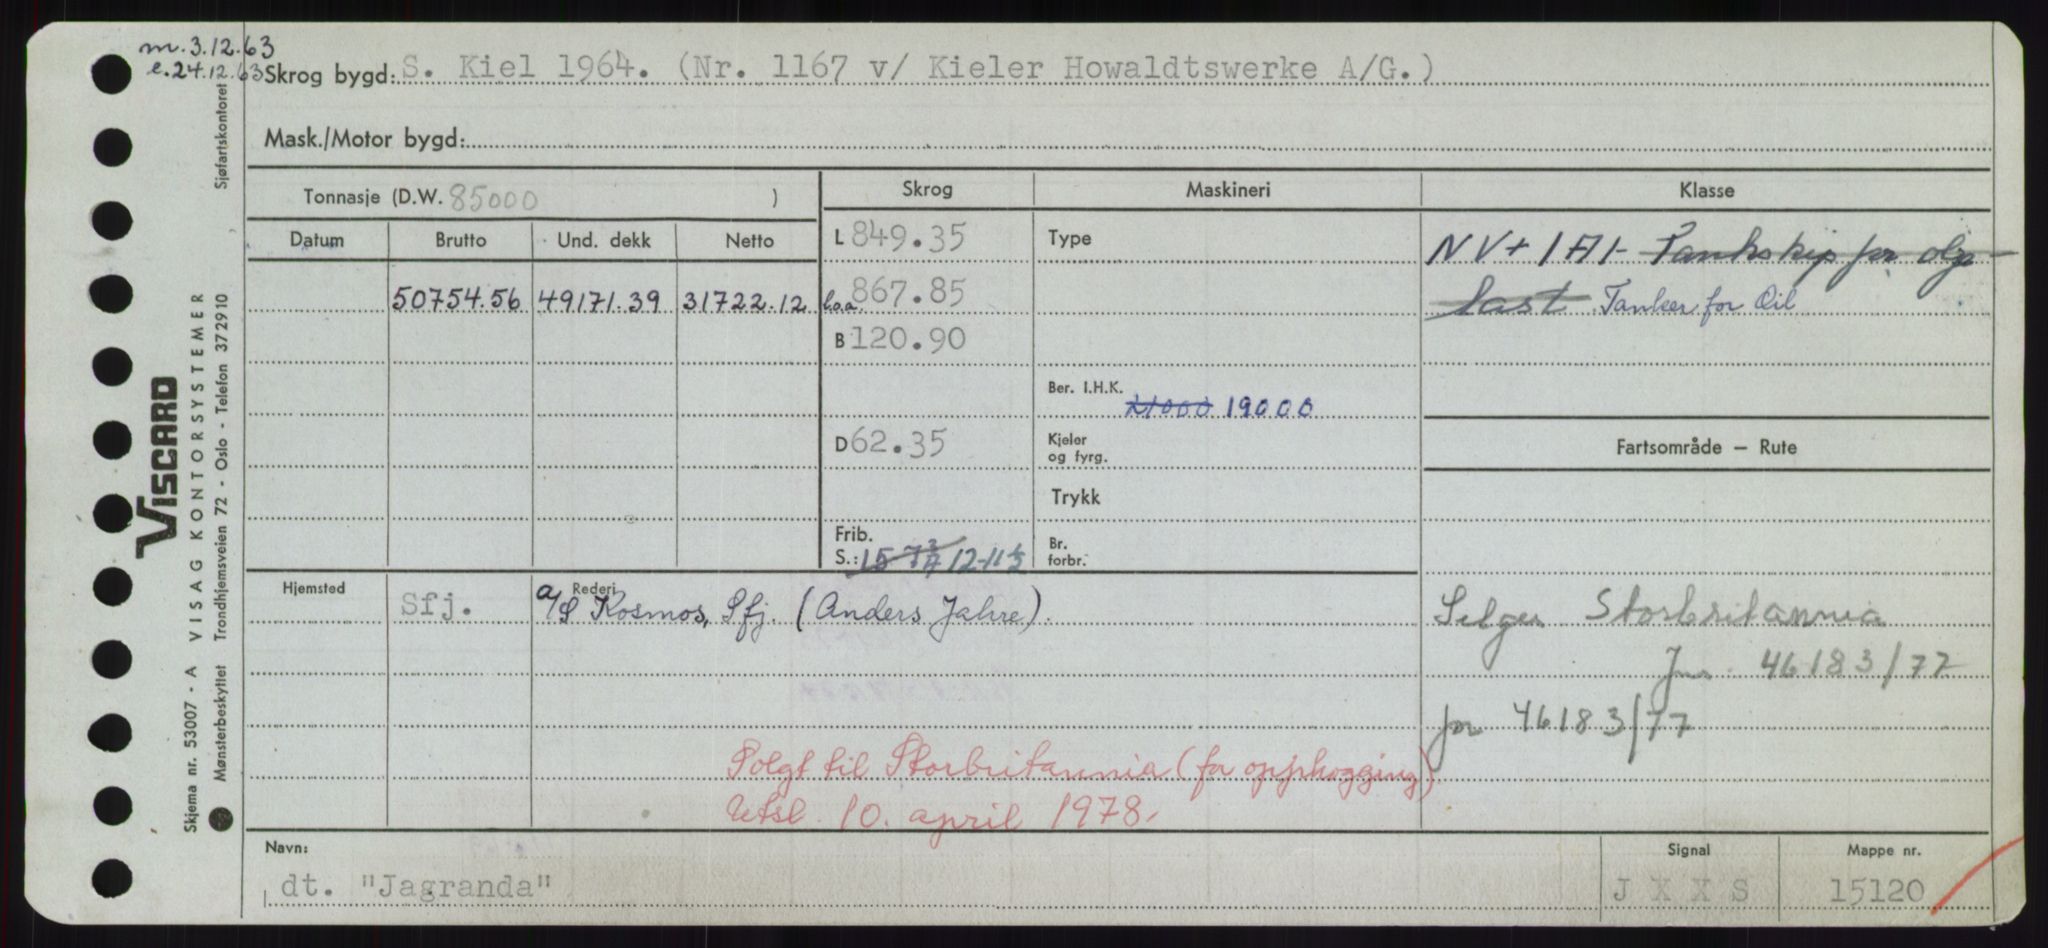 m. 3.12.63
e. 24.12.63 Skrog bygd: S. Kiel 1964. (Nr. 1167 v/ Kieler Howaldtswerke A/G.)
Mask./Motor bygd:
Tonnasje (D.W. 85000 )
Skrog Maskineri Klasse
Datum Brutto Und. dekk Netto
L 849.35 Type NV + 1A1 - Tankskip for olje-
50754.56 49171.39 31722.12 l.o.a. 867.85 last Tanker for Oil
B 120.90
Ber. I.H.K. 21000 19000
D 62.35 Kjeler og fyrg. Fartsområde — Rute
Trykk
Frib. S.: 12-11½ Br. forbr.
Hjemsted Rederi
Sfj. A/S Kosmos, Sfj. (Anders Jahre).
Selges Storbritannia
Jnr. 46183/77
jnr 46183/77
Solgt til Storbritannia (for opphogging)
Utsl. 10. april 1978.
Navn: Signal Mappe nr.
dt. "Jagranda" J X X S 15120
VISCARD
Skjema nr. 53007 - A VISAG KONTORSYSTEMER
Mønsterbeskyttet Trondhjemsveien 72 - Oslo - Telefon 372910 Sjøfartskontoret